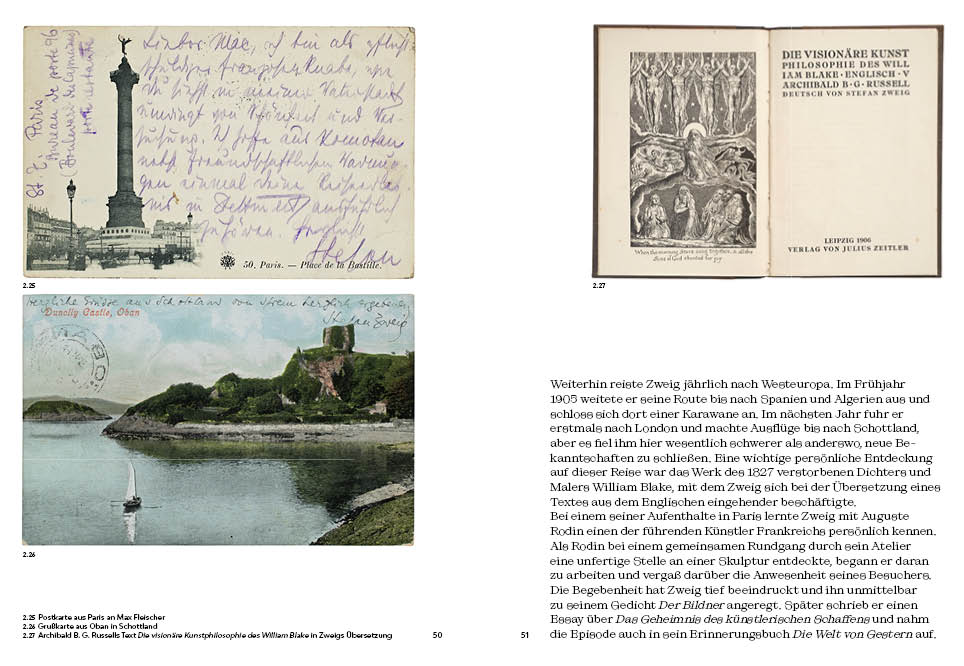 St. Z. Paris
Bureau de poste 96
(Boulevard des Capucines)
poste restante
Lieber Mac, ich bin als
und
Ich hoffe aus Komotau
nebst freundschaftlichen
gen einmal deine
ausführlich
zu hören. Herzlichst
Stefan
50. Paris. — Place de la Bastille.
2.25
Herzliche Grüße aus Schottland von Ihrem herzlich ergebenen
Stefan Zweig
Dunolly Castle, Oban
OBAN
2.26
When the morning Stars sang together, & all the
Sons of God shouted for joy
DIE VISIONÄRE KUNST
PHILOSOPHIE DES WILL
IAM BLAKE · ENGLISCH · V
ARCHIBALD B · G · RUSSELL
DEUTSCH VON STEFAN ZWEIG
LEIPZIG 1906
VERLAG VON JULIUS ZEITLER
2.27
2.25 Postkarte aus Paris an Max Fleischer
2.26 Grußkarte aus Oban in Schottland
2.27 Archibald B. G. Russells Text Die visionäre Kunstphilosophie des William Blake in Zweigs Übersetzung
50
51
Weiterhin reiste Zweig jährlich nach Westeuropa. Im Frühjahr
1905 weitete er seine Route bis nach Spanien und Algerien aus und
schloss sich dort einer Karawane an. Im nächsten Jahr fuhr er
erstmals nach London und machte Ausflüge bis nach Schottland,
aber es fiel ihm hier wesentlich schwerer als anderswo, neue Be-
kanntschaften zu schließen. Eine wichtige persönliche Entdeckung
auf dieser Reise war das Werk des 1827 verstorbenen Dichters und
Malers William Blake, mit dem Zweig sich bei der Übersetzung eines
Textes aus dem Englischen eingehender beschäftigte.
Bei einem seiner Aufenthalte in Paris lernte Zweig mit Auguste
Rodin einen der führenden Künstler Frankreichs persönlich kennen.
Als Rodin bei einem gemeinsamen Rundgang durch sein Atelier
eine unfertige Stelle an einer Skulptur entdeckte, begann er daran
zu arbeiten und vergaß darüber die Anwesenheit seines Besuchers.
Die Begebenheit hat Zweig tief beeindruckt und ihn unmittelbar
zu seinem Gedicht Der Bildner angeregt. Später schrieb er einen
Essay über Das Geheimnis des künstlerischen Schaffens und nahm
die Episode auch in sein Erinnerungsbuch Die Welt von Gestern auf.